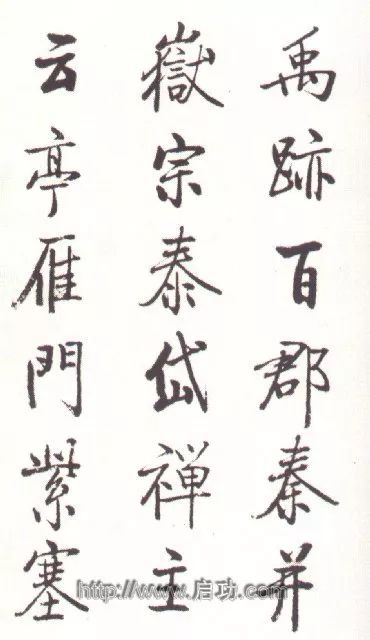 禹跡百郡秦并
嶽宗泰岱禅主
云亭雁門紫塞
http://www.启功.com